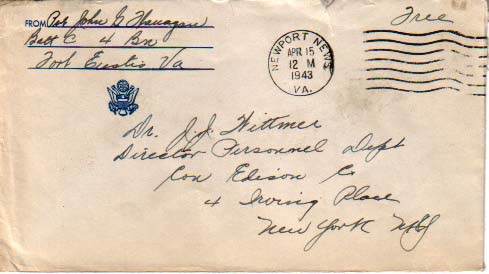 FROM Pvt John G Flanagan
Batt C 4 Bn
Fort Eustis Va
Free
NEWPORT NEWS
APR 15
12 M
1943
VA.
Dr. J. J. Wittmer
Director Personnel Dept
Con Edison Co
4 Irving Place
New York NY